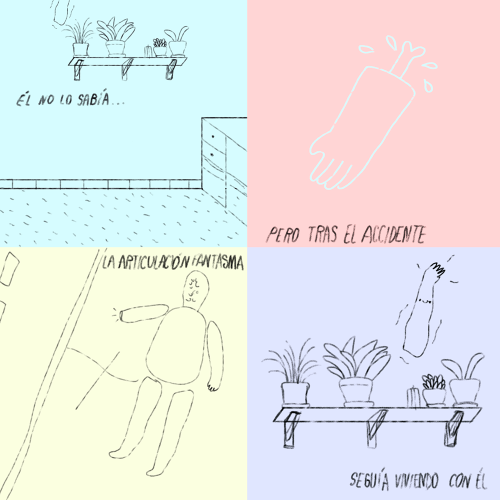 ÉL NO LO SABÍA...
PERO TRAS EL ACCIDENTE
LA ARTICULACIÓN FANTASMA
SEGUÍA VIVIENDO CON ÉL